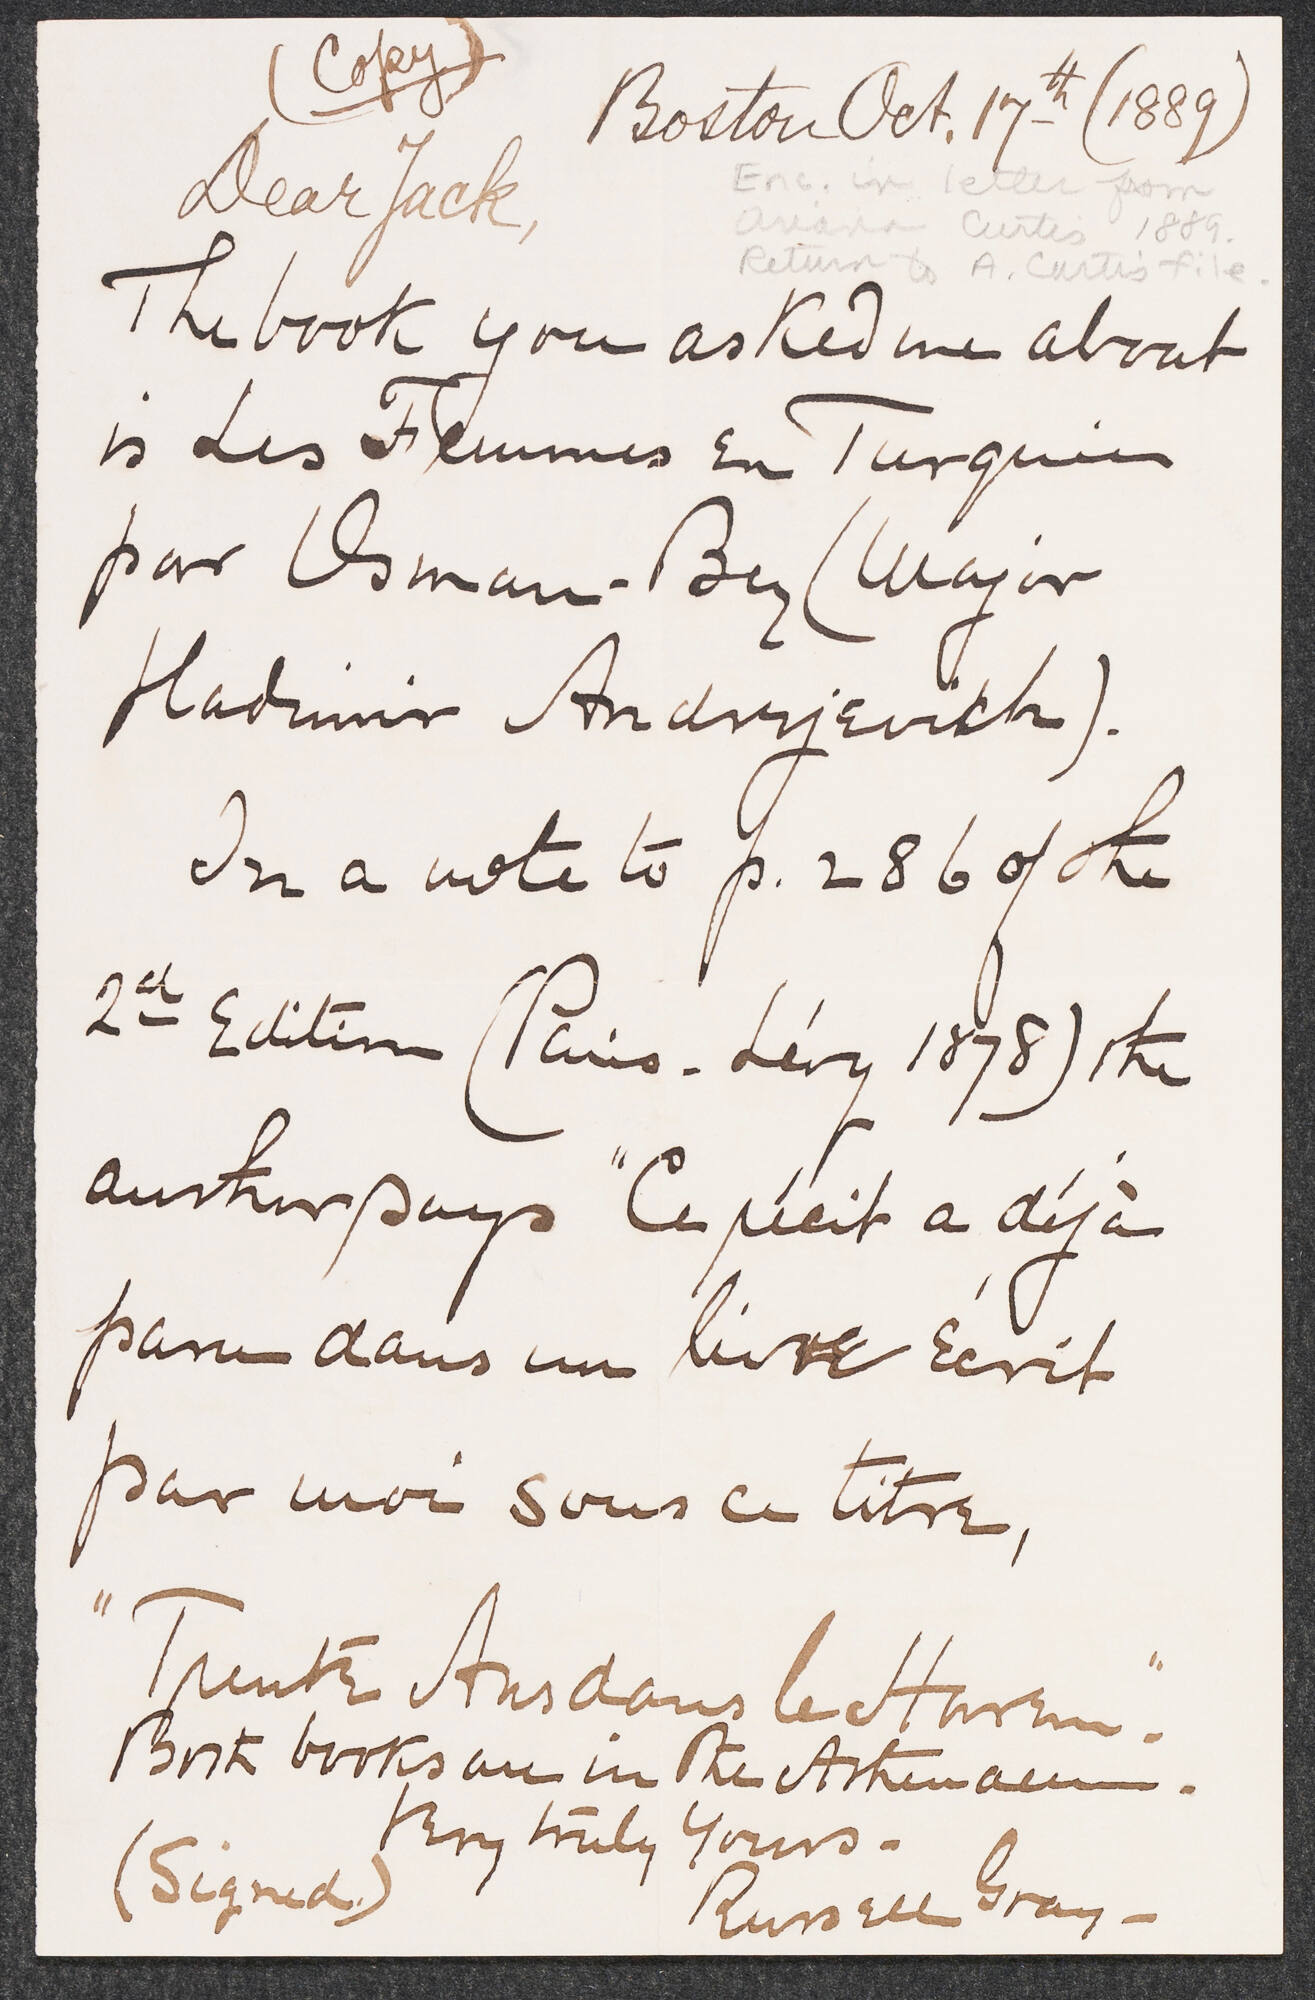 (Copy)
Boston Oct. 17th (1889)
Enc. in letter from
Ariana Curtis 1889.
Return to A. Curtis file.
Dear Jack,
The book you asked me about
is Les Femmes en Turquie
par Osman-Bey (Major
Vladimir Andrejevich).
In a note to p. 286 of the
2d Edition (Paris - Lévy 1878) the
author says "Ce récit a déjà
paru dans un livre écrit
par moi sous ce titre,
"Trente Ans dans le Harem".
Both books are in the Athenaeum.
Very truly Yours -
(Signed.)
Russell Gray -